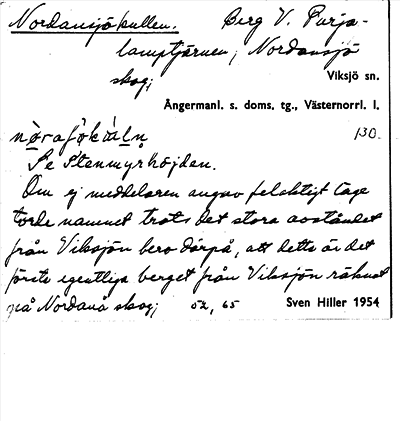 Nordansjökullen. Berg V. Purja-
lamptjärnen; Nordansjö
skog; Viksjö sn.
Ångermanl. s. doms. tg., Västernorrl. l.
130.
Se Stenmyrhöjden.
Om ej meddelaren angav felaktigt läge
torde namnet trots det stora avståndet
från Viksjön bero därpå, att detta är det
första egentliga berget från Viksjön räknat
på Nordanå skog; 52, 65 Sven Hiller 1954